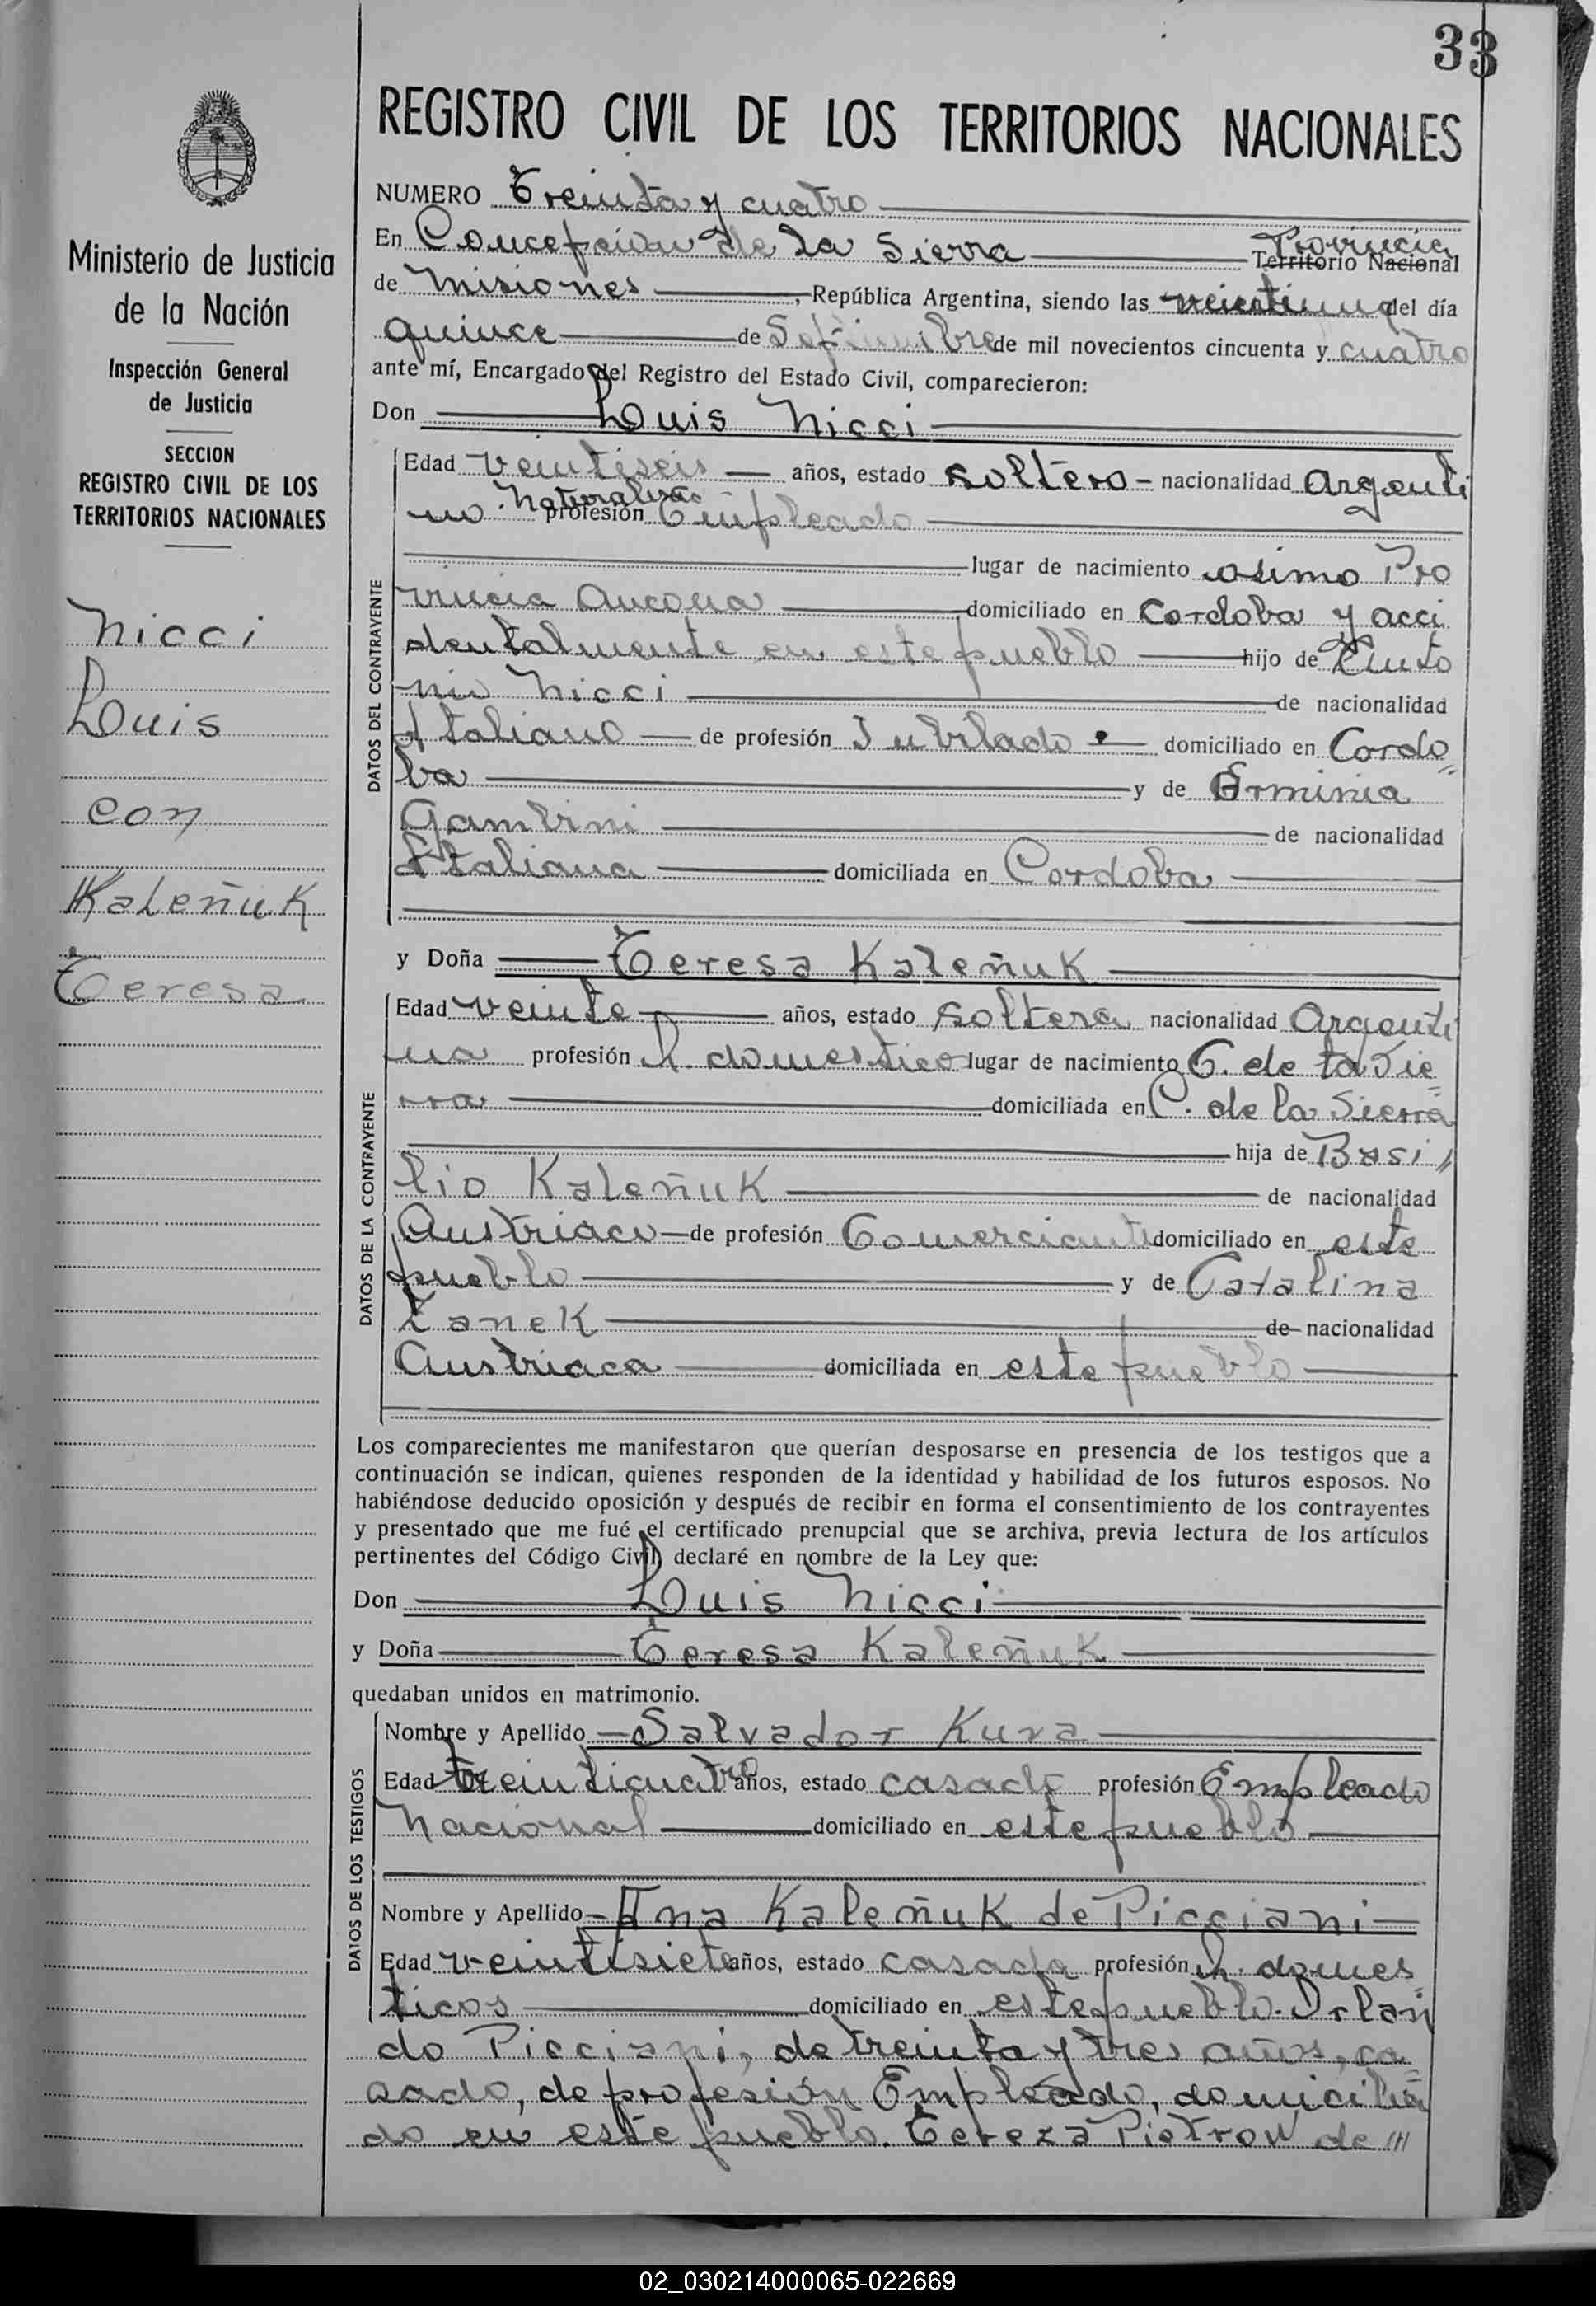 33
REGISTRO CIVIL DE LOS TERRITORIOS NACIONALES
Ministerio de Justicia
de la Nación
Inspección General
de Justicia
SECCION
REGISTRO CIVIL DE LOS
TERRITORIOS NACIONALES
Nicci
Luis
con
Kaleñuk
Teresa
NUMERO Treinta y cuatro
En Concepcion de la Sierra Provincia Territorio Nacional
de Misiones, República Argentina, siendo las del día
quince de Septiembre de mil novecientos cincuenta y cuatro
ante mí, Encargado del Registro del Estado Civil, comparecieron:
Don Luis Nicci
DATOS DEL CONTRAYENTE
Edad veintiseis años, estado soltero nacionalidad Argenti
no profesión Empleado
lugar de nacimiento osimo Pro
vincia Ancona domiciliado en Cordoba y acci
dentalmente en este pueblo hijo de
nio Nicci de nacionalidad
Italiano de profesión Jubilado domiciliado en Cordo
ba y de Erminia
Gambini de nacionalidad
Italiana domiciliada en Cordoba
y Doña Teresa Kaleñuk
DATOS DE LA CONTRAYENTE
Edad veinte años, estado soltera nacionalidad Argenti
na profesión Q. domestico lugar de nacimiento C. de la Sie
rra domiciliada en C. de la Sierra
hija de Basi
lio Kaleñuk de nacionalidad
Austriaco de profesión Comerciante domiciliado en este
pueblo y de Catalina
Zanek de nacionalidad
Austriaca domiciliada en este pueblo
Los comparecientes me manifestaron que querían desposarse en presencia de los testigos que a
continuación se indican, quienes responden de la identidad y habilidad de los futuros esposos. No
habiéndose deducido oposición y después de recibir en forma el consentimiento de los contrayentes
y presentado que me fué el certificado prenupcial que se archiva, previa lectura de los artículos
pertinentes del Código Civil, declaré en nombre de la Ley que:
Don Luis Nicci
y Doña Teresa Kaleñuk
quedaban unidos en matrimonio.
DATOS DE LOS TESTIGOS
Nombre y Apellido Salvador Kura
Edad treinticuatro años, estado casado profesión Empleado
Nacional domiciliado en este pueblo
Nombre y Apellido Ana Kaleñuk de Picciani
Edad veintisiete años, estado casada profesión Q. domes
ticos domiciliado en este pueblo. Orlan
do Picciani, de treinta y tres años, ca
sado, de profesión Empleado, domicilia
do en este pueblo. Tereza Pietrow de
02_030214000065-022669